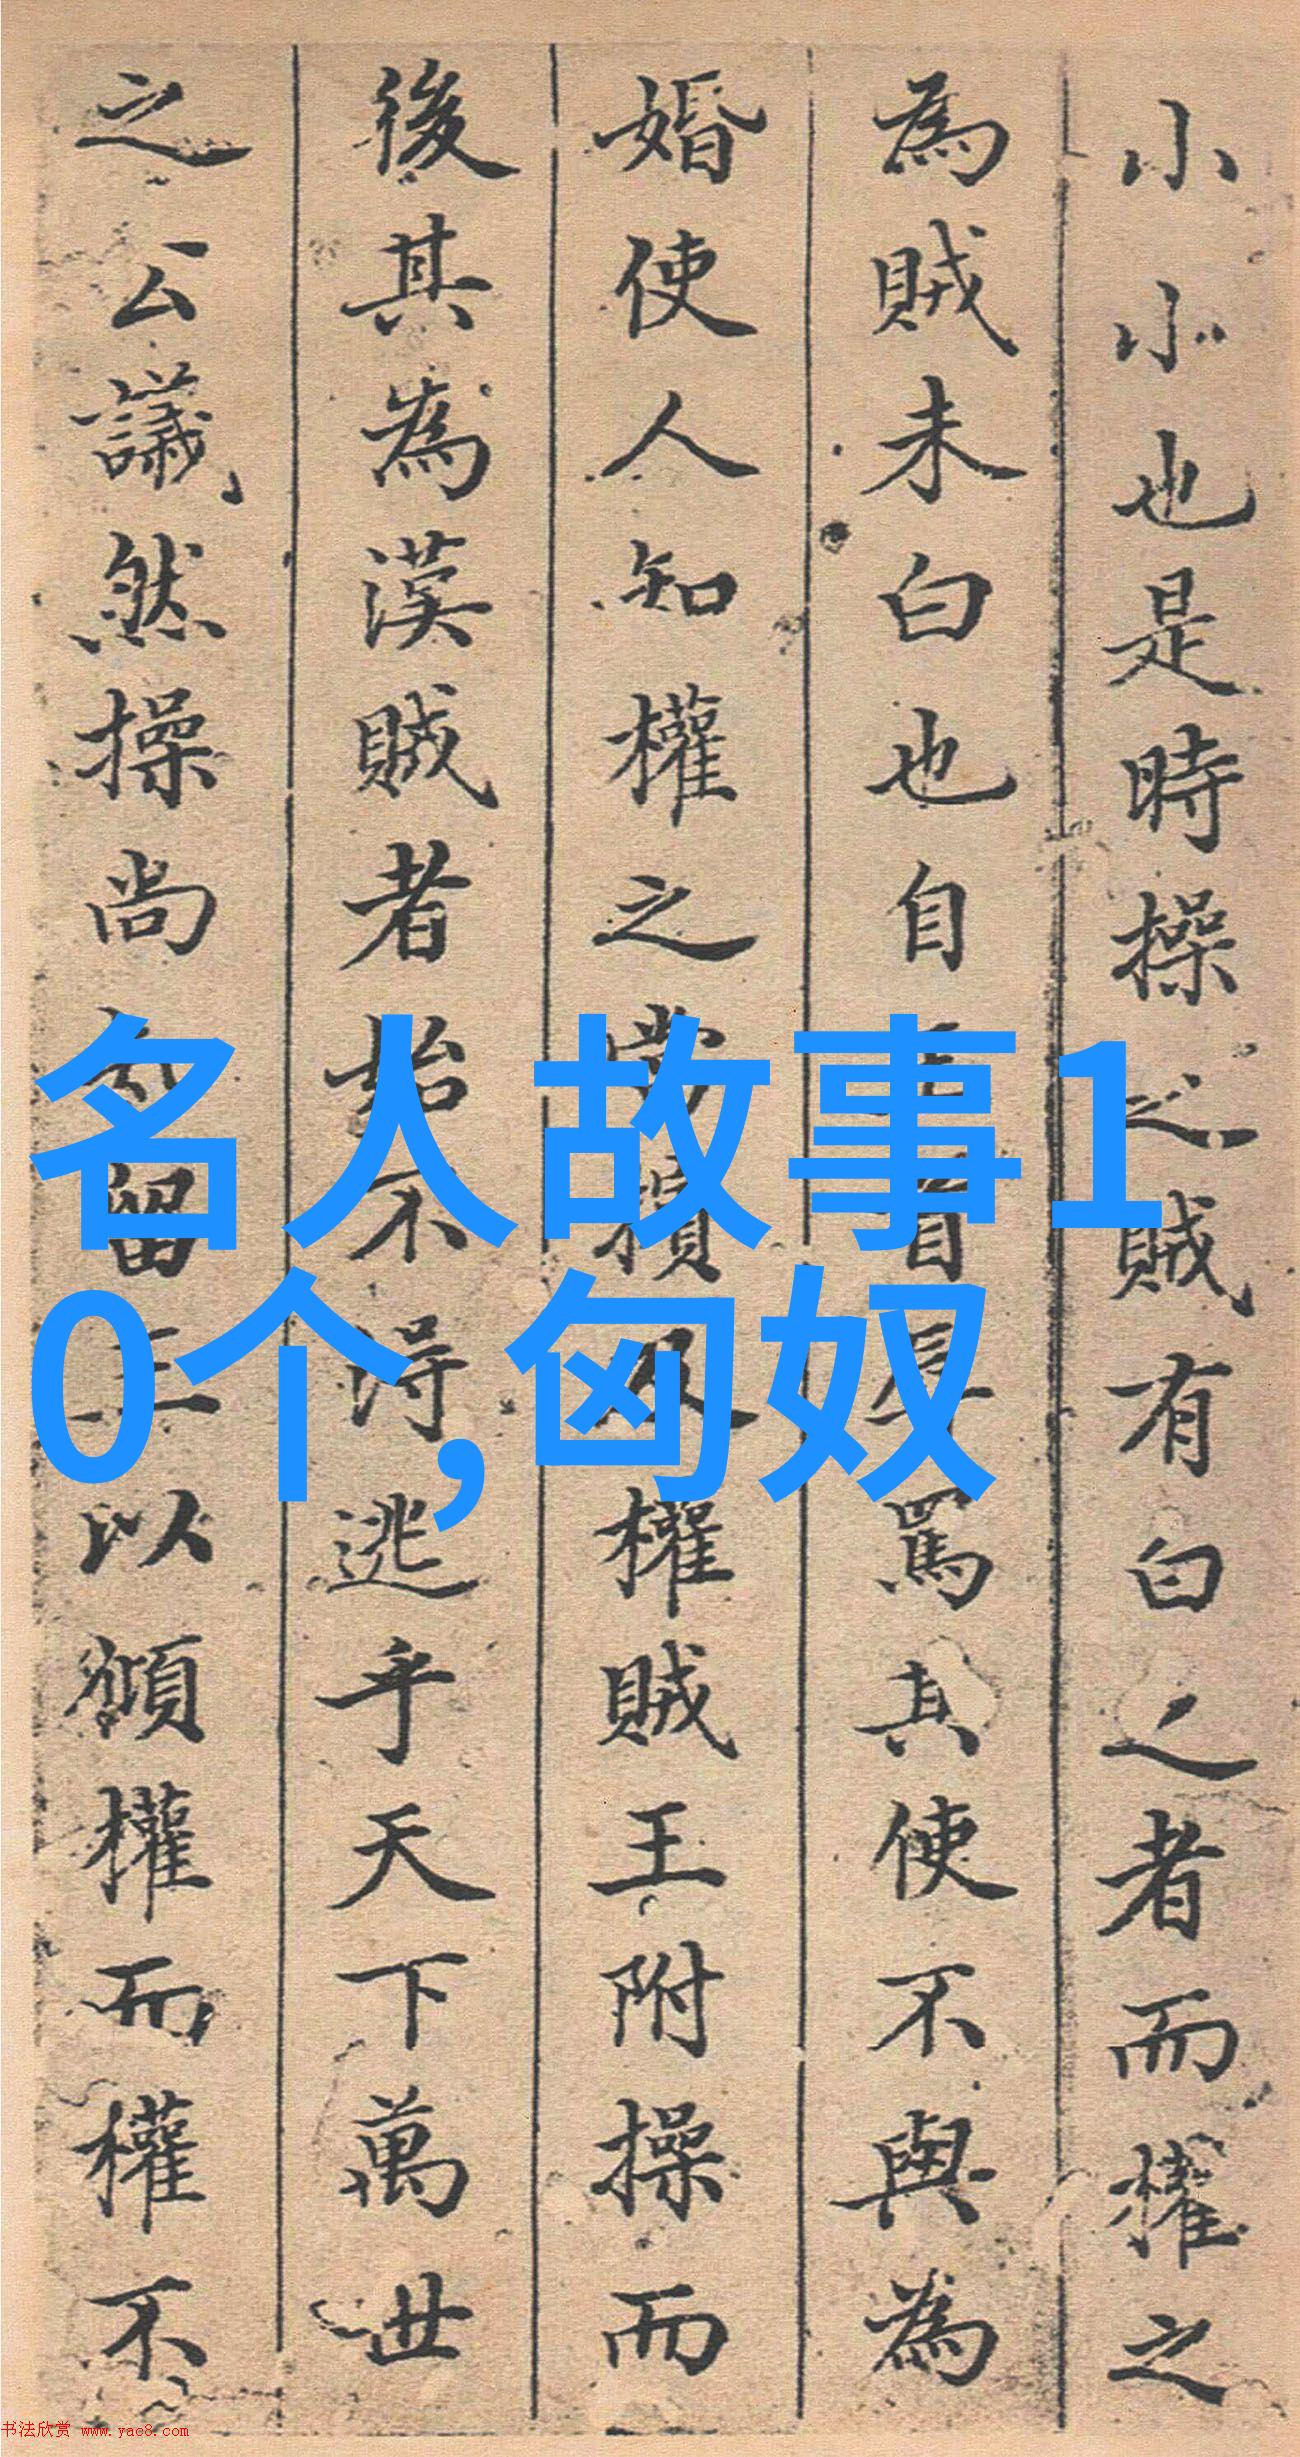 小小也是時操之賊有白之者而權之
為賊未白也自罵其使不與為
婚使人知權之損權賊王附操而
後其為漢賊者不得逃乎天下萬世
之公議然操尚留以權而權不
名人故事1
0个,匈奴
书法欣赏 www.yac8.com